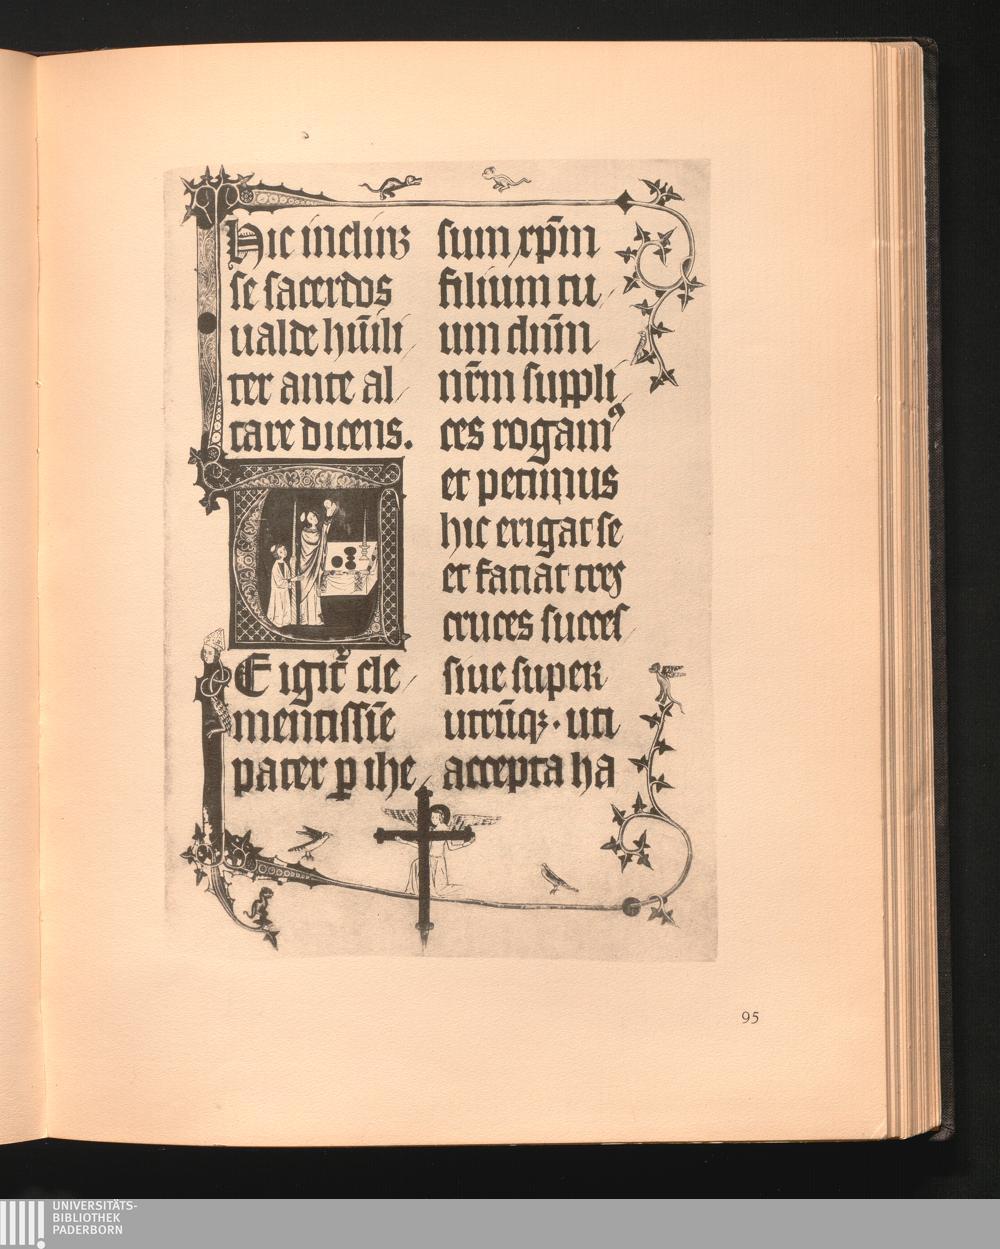 Hic inclinꝫ
se sacerdos
ualde hūili
ter ante al
tare dicens.
TE igit̄ cle
mentissīe
pater ꝑ ihe
sum xp̄m
filium tu
um dn̄m
nr̄m suppli
ces rogamꝰ
et petimus
hic erigat se
et faciat tres
cruces succes
siue super
utrūqꝫ · uti
accepta ha
95
UNIVERSITÄTS-
BIBLIOTHEK
PADERBORN